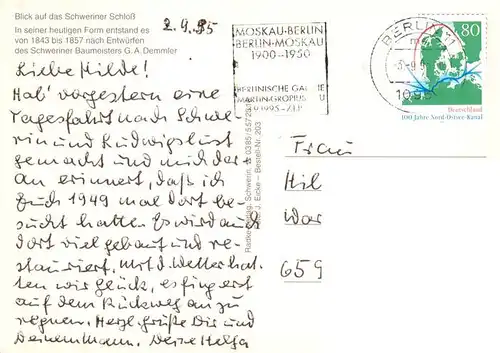 Blick auf das Schweriner Schloß
In seiner heutigen Form entstand es
von 1843 bis 1857 nach Entwürfen
des Schweriner Baumeisters G. A. Demmler
2.9.95
Liebe Hilde!
Hab' vorgestern eine
Tagesfahrt nach Schwe-
rin und Ludwigslust
gemacht und mich dar-
an erinnert, daß ich
Euch 1949 mal dort be-
sucht hatte. Es wird auch
dort viel gebaut und re-
stauriert. Mit d. Wetter hat-
ten wir Glück, es fing erst
auf dem Rückweg an zu
regnen. Herzl. Grüße Dir und
Deinem Mann. Deine Helga
MOSKAU-BERLIN
BERLIN-MOSKAU
1900-1950
BERLINISCHE GALE
MARTIN-GROPIUS
BERLIN
80
Deutschland
100 Jahre Nord-Ostsee-Kanal
Frau
Hil
War
659
Schwerin, ☎ 0385/557
J. Eicke – Bestell-Nr. 203